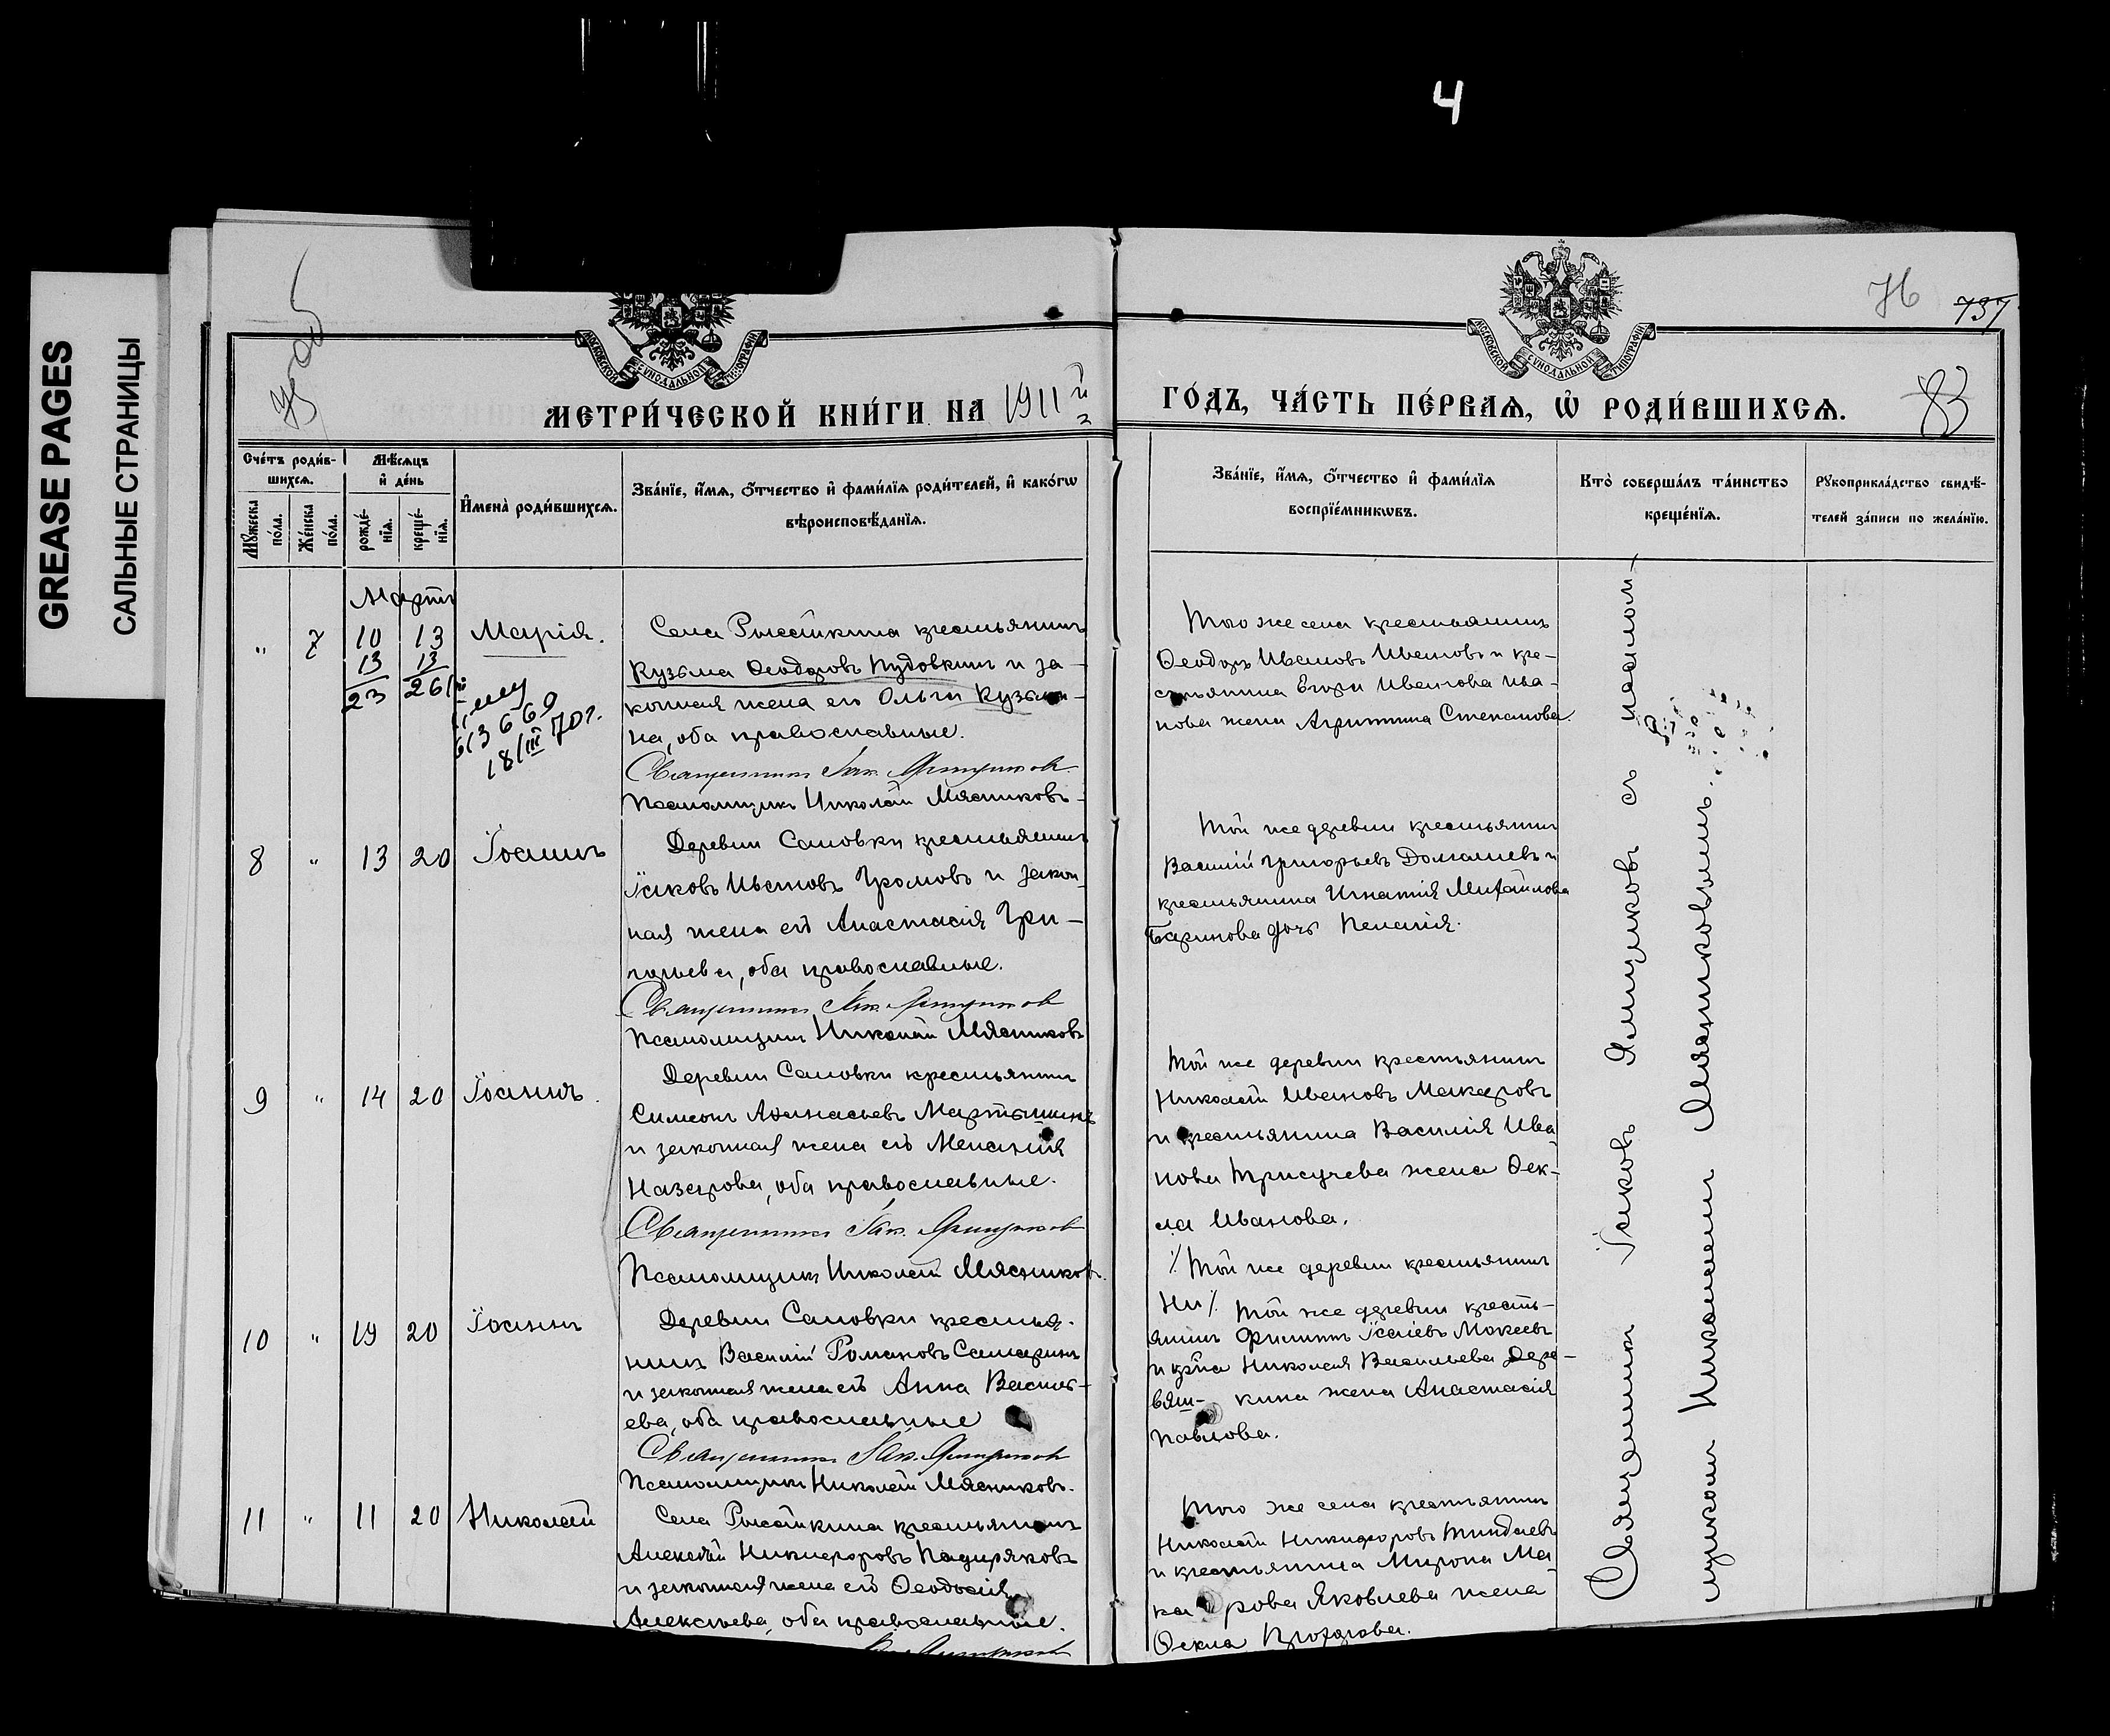 4
GREASE PAGES
САЛЬНЫЕ СТРАНИЦЫ
76 737
83
МОСКОВСКОЙ СѴНОДАЛЬНОЙ ТИПОГРАФІИ
МОСКОВСКОЙ СѴНОДАЛЬНОЙ ТИПОГРАФІИ
МЕТРИ́ЧЕСКОЙ КНИ́ГИ НА 1911й
ГО́ДЪ, ЧА́СТЬ ПЕ́РВАѦ, Ѡ҆ РОДИ́ВШИХСѦ.
Сче́тъ роди́в-
шихсѧ.
Мꙋ́жеска по́ла.
Же́нска по́ла.
Мѣ́сѧцъ
и҆ де́нь
рожде́-
нїѧ.
креще́-
нїѧ.
И҆мена̀ роди́вшихсѧ.
Зва́нїе, и҆́мѧ, ѻ҆́тчество и҆ фами́лїѧ роди́телей, и҆ како́гѡ
вѣроисповѣ́данїѧ.
Зва́нїе, и҆́мѧ, ѻ҆́тчество и҆ фами́лїѧ
воспрїе́мникѡвъ.
Кто̀ соверша́лъ та́инство
креще́нїѧ.
Рꙋкоприкла́дство свидѣ́-
телей за́писи по жела́нїю.
Мартъ
" 7 10 13 Марія.
13 13
23 26/III
613669
18/III 70г.
Села Рысайкина крестьянинъ
Кузьма Ѳеодоровъ Пудовкинъ и за-
конная жена его Ольга Кузьми-
на, оба православные.
Священникъ Іак. Ямщиков
Псаломщикъ Николай Мясниковъ
Того же села крестьянинъ
Ѳеодоръ Ивановъ Ивановъ и кре-
стьянина Егора Иванова Ива-
нова жена Агрипина Степанова.
8 " 13 20 Іоаннъ
Деревни Саловки крестьянинъ
Іаковъ Ивановъ Громовъ и закон-
ная жена его Анастасія Гри-
горьева, оба православные.
Священникъ Іак. Ямщиков
Псаломщикъ Николай Мясниковъ
Той же деревни крестьянинъ
Василій Григорьевъ Домашевъ и
крестьянина Игнатія Михайлова
Баринова дочь Пелагія.
9 " 14 20 Іоаннъ.
Деревни Саловки крестьянинъ
Симеонъ Аѳанасьевъ Мартышинъ
и законная жена его Меланія
Назарова, оба православные.
Священникъ Іак. Ямщиков
Псаломщикъ Николай Мясниковъ.
Той же деревни крестьянинъ
Николай Ивановъ Макаровъ
и крестьянина Василія Ива
нова Трисучева жена Ѳек-
ла Иванова.
10 " 19 20 Іоаннъ
Деревни Саловки крестья-
нинъ Василій Романовъ Самаринъ
и законная жена его Анна Василь-
ева, оба православные
Священникъ Іак. Ямщиков
Псаломщикъ Николай Мясниковъ.
Той же деревни крестьянинъ
Ни Той же деревни кресть-
янинъ Филиппъ Исаіевъ Мокеевъ
и кр-на Николая Васильева Дере-
вяш- кина жена Анастасія
Павлова.
11 " 11 20 Николай
Села Рысайкина крестьянинъ
Алексѣй Никифоровъ Падиряковъ
и законная жена его Ѳеодосія
Алексѣева, оба православные.
Того же села крестьянинъ
Николай Никифоровъ Тиндаевъ
и крестьянина Мирона Ма
ка рова Яковлева жена
Ѳекла
Священникъ Іаковъ Ямщиковъ съ псалом-
щикомъ Николаемъ Мясниковымъ.